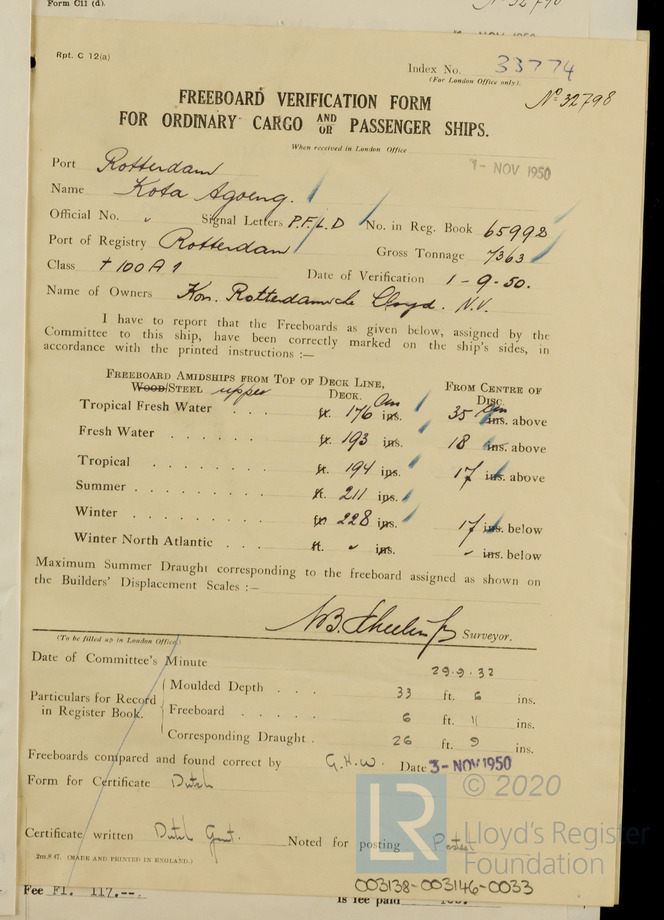 Form C11 (d).
Nº 32790
NOV 1950
Rpt. C 12(a)
Index No. 33774
(For London Office only).
Nº 32798
FREEBOARD VERIFICATION FORM
FOR ORDINARY CARGO AND OR PASSENGER SHIPS.
When received in London Office
1- NOV 1950
Port Rotterdam
Name Kota Agoeng.
Official No. " Signal Letters P.F.L.D No. in Reg. Book 65992
Port of Registry Rotterdam Gross Tonnage 7363
Class + 100 A 1 Date of Verification 1-9-50.
Name of Owners Kon. Rotterdamsche Lloyd. N.V.
I have to report that the Freeboards as given below, assigned by the
Committee to this ship, have been correctly marked on the ship's sides, in
accordance with the printed instructions :—
FREEBOARD AMIDSHIPS FROM TOP OF DECK LINE, FROM CENTRE OF
WOOD/STEEL upper DECK. DISC.
Tropical Fresh Water ft. 176 ins. cm 35 ins. cm above
Fresh Water ft. 193 ins. 18 ins. above
Tropical ft. 194 ins. 17 ins. above
Summer ft. 211 ins.
Winter ft. 228 ins. 17 ins. below
Winter North Atlantic ft. " ins. " ins. below
Maximum Summer Draught corresponding to the freeboard assigned as shown on
the Builders' Displacement Scales :—
Surveyor.
(To be filled up in London Office)
Date of Committee's Minute 29.9.32
Particulars for Record in Register Book.
Moulded Depth 33 ft. 6 ins.
Freeboard 6 ft. 11 ins.
Corresponding Draught 26 ft. 9 ins.
Freeboards compared and found correct by G.H.W. Date 3- NOV 1950
Form for Certificate Dutch
© 2020
Certificate written Dutch Govt. Noted for posting Posted
LR
Lloyd's Register
Foundation
2m.8.47. (MADE AND PRINTED IN ENGLAND.)
003138-003146-0033
Fee Fl. 117.--. Is fee paid